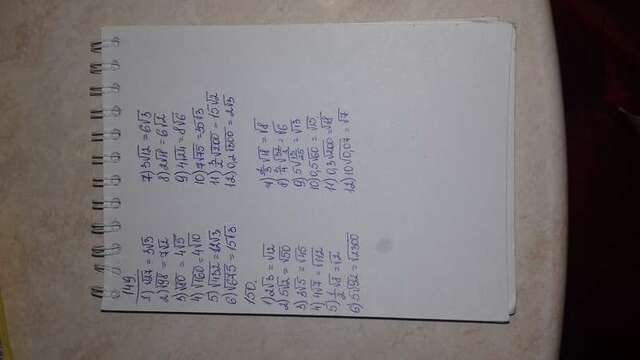 149.
1) √27 = 3√3
2) √98 = 7√2
3) √80 = 4√5
4) √160 = 4√10
5) √432 = 12√3
6) √675 = 15√3
7) 3√12 = 6√3
8) 2√18 = 6√2
9) 4√24 = 8√6
10) 7√75 = 35√3
11) 3/2 √200 = 15√2
12) 0,2√300 = 2√3
150.
1) 2√3 = √12
2) 5√2 = √50
3) 3√5 = √45
4) 4√7 = √112
5) 1/2 √8 = √2
6) 5√92 = √2300
8) 3/4 √32/3 = √6
9) 5√13/25 = √13
10) 0,5√60 = √15
11) 0,3√200 = √18
12) 10√0,07 = √7